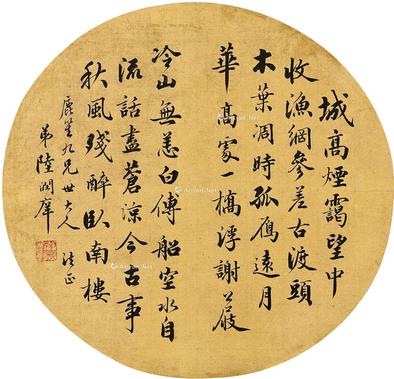 城高煙靄望中
收漁網參差古渡頭
木葉凋時孤鴈遠月
華高處一橋浮謝
冷山無恙白傅船空水自
流話盡蒼涼今古事
秋風殘醉臥南樓
鹿笙九兄世大人 法正
弟陸潤庠